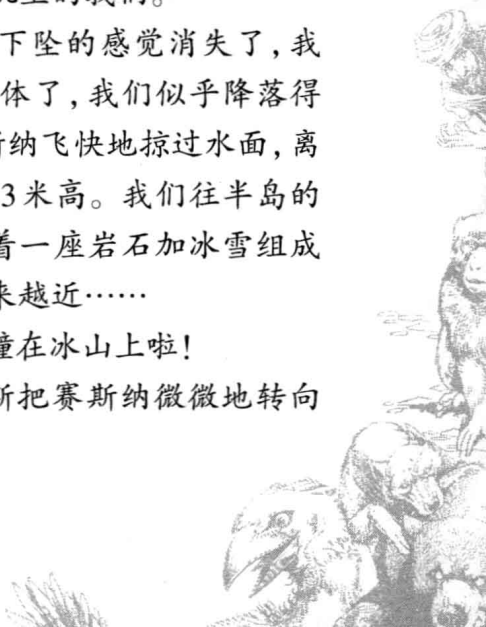 的我们。
下坠的感觉消失了，我
体了，我们似乎降落得
纳飞快地掠过水面，离
3米高。我们往半岛的
着一座岩石加冰雪组成
越近……
在冰山上啦！
把赛斯纳微微地转向